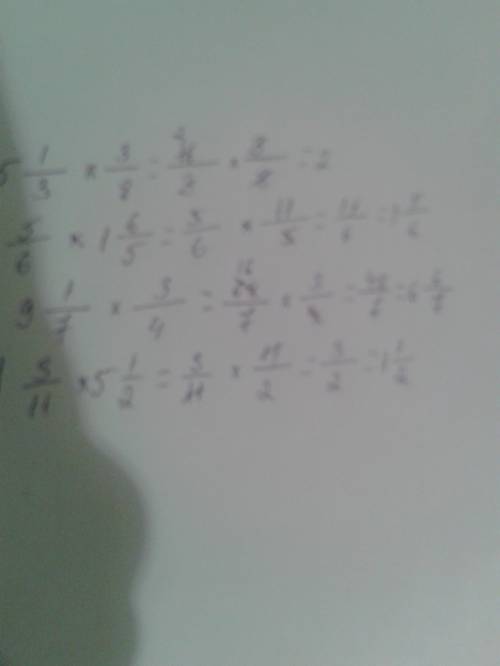 5 1/3 × 3/8 = 16/3 × 3/8 = 2
5/6 × 1 6/5 = 5/6 × 11/5 = 11/6 = 1 5/6
9 1/7 × 3/4 = 64/7 × 3/4 = 48/7 = 6 6/7
3/11 × 5 1/2 = 3/11 × 11/2 = 3/2 = 1 1/2